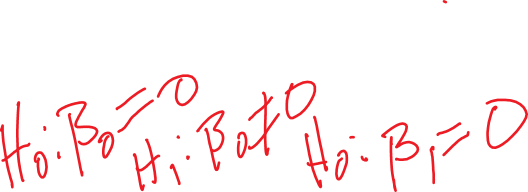 H₀: β₀ = 0 H₁: β₀ ≠ 0 H₀: β₁ = 0